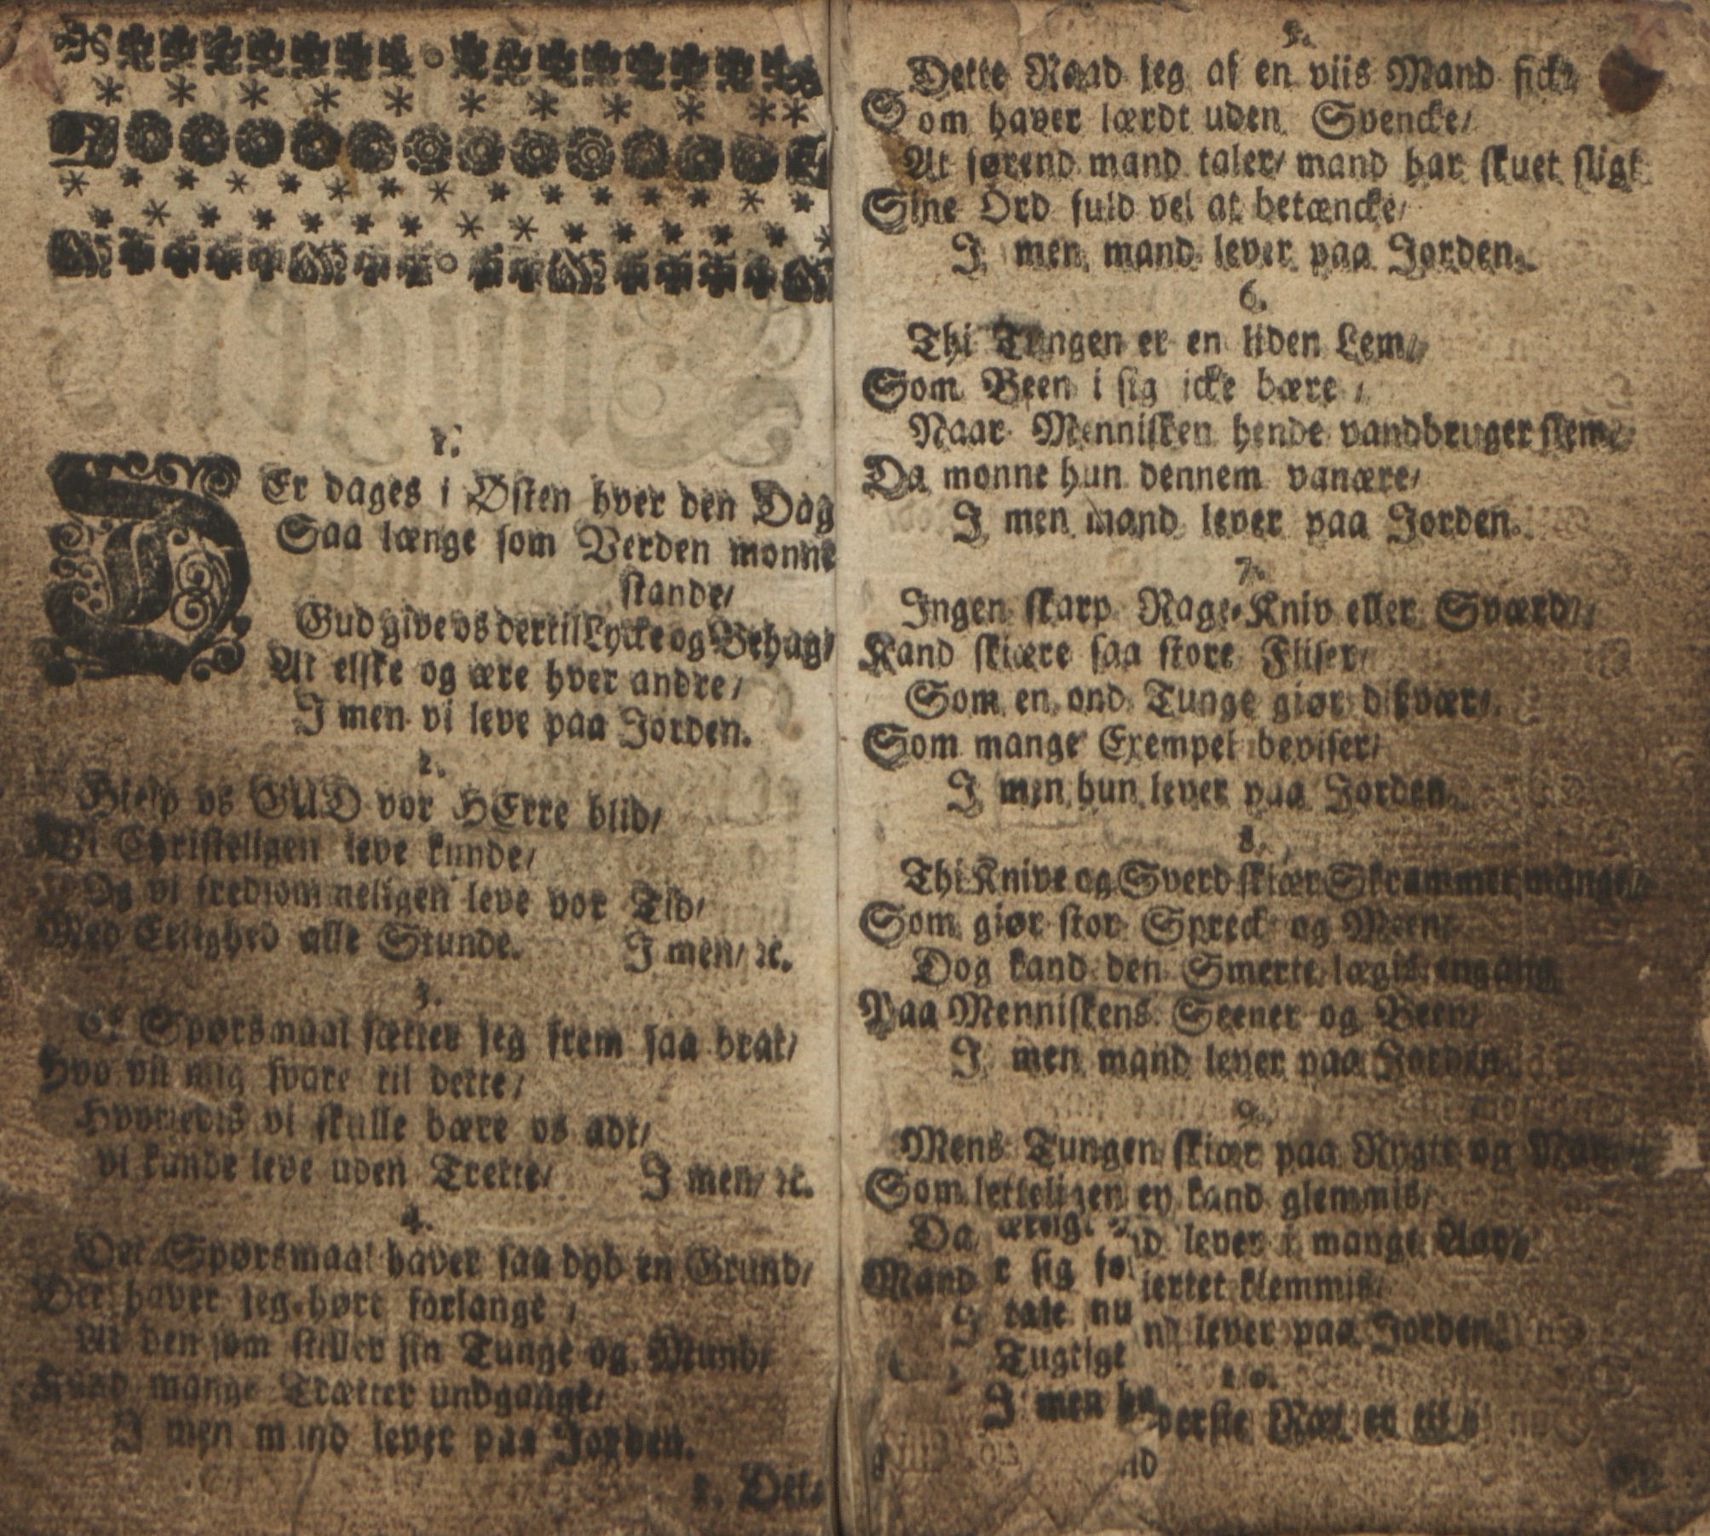 1.
DEr dages i Østen hver den Dag
Saa længe som Verden monne
stande/
Gud give os dertil Lycke og Behag/
At elske og ære hver andre/
I men vi leve paa Jorden.
2.
Hielp os GUD vor HErre blid/
Vi Christeligen leve kunde/
Og vi fredsommeligen leve vor Tid/
Med Erlighed alle Stunde. I men/ ꝛc.
3.
Et Spørsmaal sætter jeg frem saa brat/
Hvo vil mig svare til dette/
Hvorledis vi skulle bære os adt/
vi kunde leve uden Trette/ I men/ ꝛc.
4.
Det Spørsmaal haver saa dyb en Grund/
Det haver jeg hørt forlange/
At den som stiller sin Tunge og Mund/
Kand mange Trætter undgange/
I men mand lever paa Jorden.
5. Dette
5.
Dette Raad jeg af en viis Mand fick/
Som haver lærdt uden Svencke/
At førend mand taler/ mand har skuet sligt
Sine Ord fuld vel at betæncke/
I men mand lever paa Jorden.
6.
Thi Tungen er en liden Lem/
Som Been i sig icke bære/
Naar Mennisken hende vandbruger slem/
Da monne hun dennem vanære/
I men mand lever paa Jorden.
7.
Ingen skarp Rage-Kniv eller Sværd/
Kand skiære saa store Fliser/
Som en ond Tunge giør
Som mange Exempel beviser/
I men hun lever paa Jorden.
8.
Thi Knive og Sverd skiær Skrammer mange/
Som giør stor Spreck og Meen/
Dog kand den Smerte lægis engang
Paa Menniskens Seener og Been/
I men mand lever paa Jorden.
9.
Mens Tungen skiær paa Rygte og
Som letteligen ey kand glemmis/
Da lever i mange Aar/
Mand r sig klemmis/
I tale nu lever paa Jorden.
Tugtige
10.
I men Næt er til